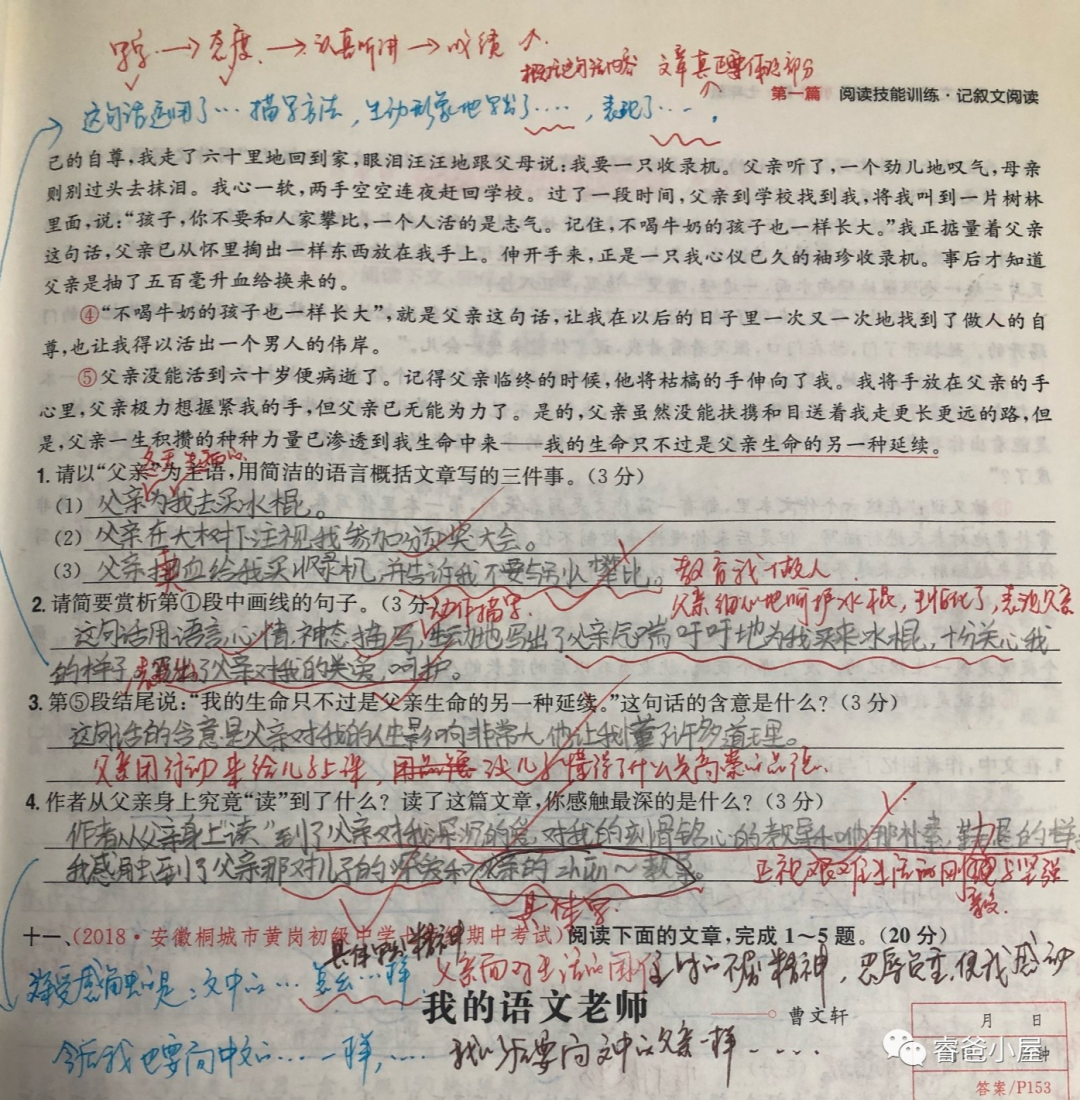 字 → 态度 → 认真听讲 → 成绩
概括这句话内容 文章真正要体现部分
第一篇 阅读技能训练·记叙文阅读
这句话运用了…描写方法,生动形象地写出了……,表现了…。
己的自尊,我走了六十里地回到家,眼泪汪汪地跟父母说:我要一只收录机。父亲听了,一个劲儿地叹气,母亲
则别过头去抹泪。我心一软,两手空空连夜赶回学校。过了一段时间,父亲到学校找到我,将我叫到一片树林
里面,说:“孩子,你不要和人家攀比,一个人活的是志气。记住,不喝牛奶的孩子也一样长大。”我正掂量着父亲
这句话,父亲已从怀里掏出一样东西放在我手上。伸开手来,正是一只我心仪已久的袖珍收录机。事后才知道
父亲是抽了五百毫升血给换来的。
④“不喝牛奶的孩子也一样长大”,就是父亲这句话,让我在以后的日子里一次又一次地找到了做人的自
尊,也让我得以活出一个男人的伟岸。
⑤父亲没能活到六十岁便病逝了。记得父亲临终的时候,他将枯槁的手伸向了我。我将手放在父亲的手
心里,父亲极力想握紧我的手,但父亲已无能为力了。是的,父亲虽然没能扶携和目送着我走更长更远的路,但
是,父亲一生积攒的种种力量已渗透到我生命中来——我的生命只不过是父亲生命的另一种延续。
冬天
1. 请以“父亲”为主语,用简洁的语言概括文章写的三件事。(3 分)
(1) 父亲为我去买冰棍。
(2) 父亲在大树下注视我参加颁奖大会。
(3) 父亲卖血给我买收录机,并告诉我不要与别人攀比。 教育我做人
2. 请简要赏析第①段中画线的句子。(3 分)
动作描写
父亲细心地呵护冰棍,到融化了,表现父亲
这句话用语言、心情、神态描写,生动地写出了父亲气喘吁吁地为我买来冰棍,十分关心我
的样子,表现出了父亲对我的关爱、呵护。
3. 第⑤段结尾说:“我的生命只不过是父亲生命的另一种延续。”这句话的含意是什么?(3 分)
这句话的含意是父亲对我的人生影响非常大,他让我懂了许多道理。
父亲用行动来给儿子上课,让儿子懂得了什么是高尚的品德。
4. 作者从父亲身上究竟“读”到了什么?读了这篇文章,你感触最深的是什么?(3 分)
作者从父亲身上“读”到了父亲对我深沉的爱,对我的刻骨铭心的教导和他那朴素,勤恳的样
我感触到了父亲那对儿子的深爱和父亲的教导。
正视艰难生活的刚强与坚强
具体写
十一、(2018·安徽桐城市黄岗初级中学七年级期中考试)阅读下面的文章,完成 1~5 题。(20 分)
具体写 精神
父亲面对生活的困住时的不屈精神,忍辱负重,使我感动
我的语文老师
曹文轩
今后我也要向文中的……一样,……
我以后要向文中的父亲一样……
月 日
答案/P153
睿爸小屋